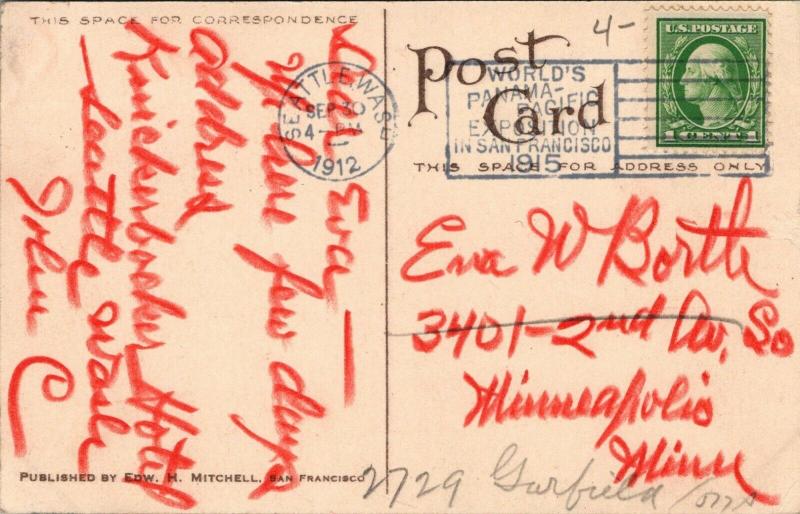 THIS SPACE FOR CORRESPONDENCE
Dear Eva —
Here few days
Address
Knickerbocker Hotel
Seattle Wash
John C
PUBLISHED BY EDW. H. MITCHELL, SAN FRANCISCO
Post Card
4-
SEATTLE, WASH.
SEP 30
4-PM
1912
WORLD'S
PANAMA-
PACIFIC
EXPOSITION
IN SAN FRANCISCO
1915
U.S. POSTAGE
1 CENTS 1
THIS SPACE FOR ADDRESS ONLY
Eva W Bortle
3401-2nd Av, So
Minneapolis
Minn
2729 Garfield